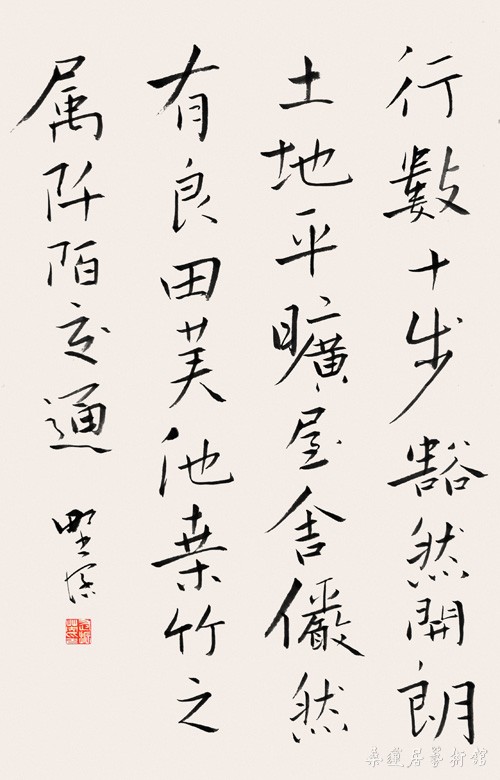 行數十步豁然開朗
土地平曠屋舍儼然
有良田美池桒竹之
属阡陌交通
桒蓮居藝術館